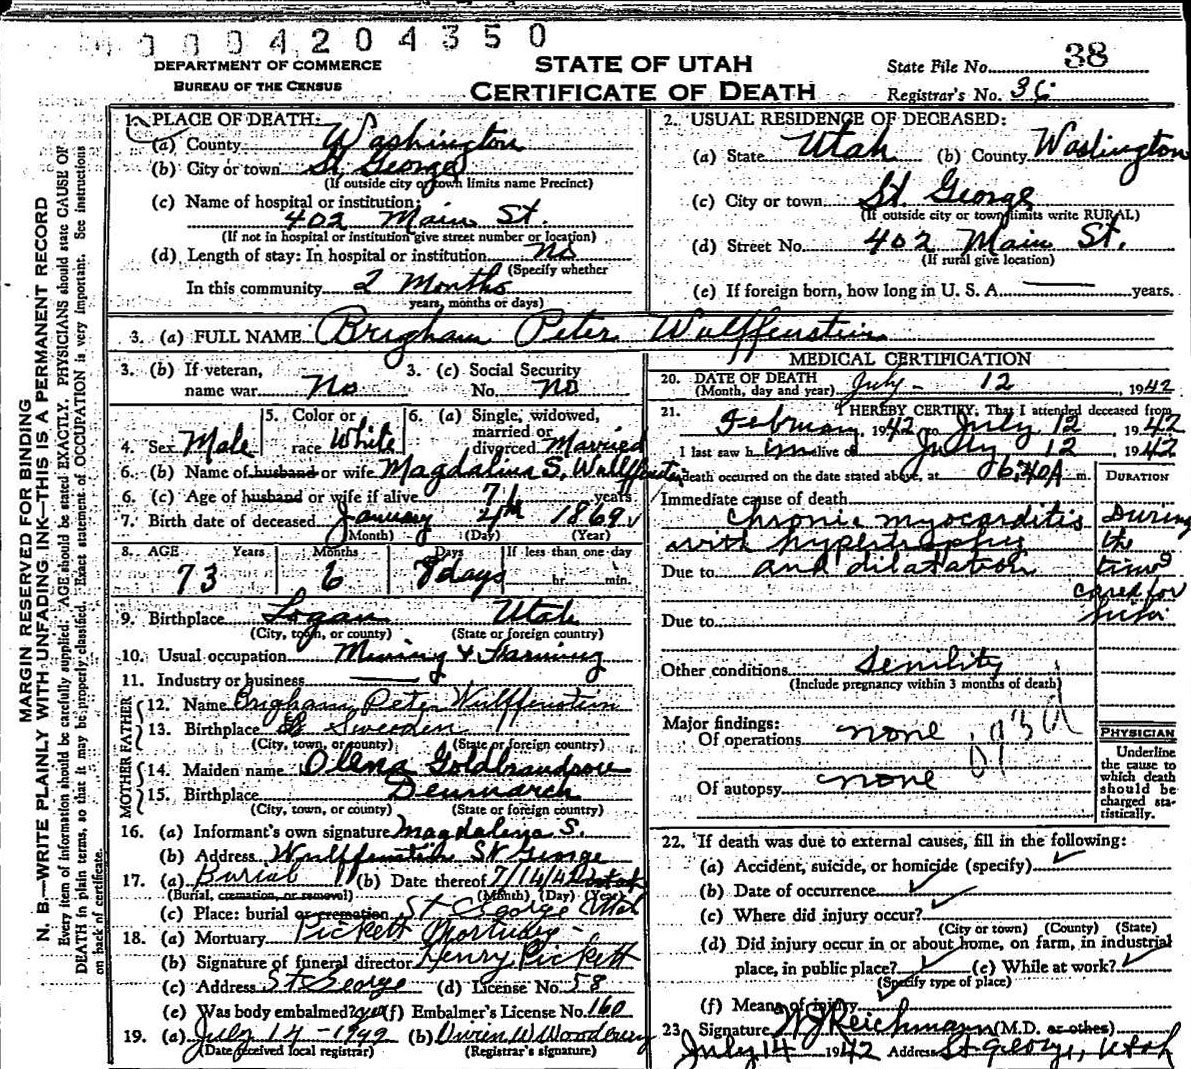 0 0 0 4 2 0 4 3 5 0
DEPARTMENT OF COMMERCE
BUREAU OF THE CENSUS
STATE OF UTAH
CERTIFICATE OF DEATH
State File No. 38
Registrar's No. 36
MARGIN RESERVED FOR BINDING
N. B.—WRITE PLAINLY WITH UNFADING INK—THIS IS A PERMANENT RECORD
Every item of information should be carefully supplied. AGE should be stated EXACTLY. PHYSICIANS should state CAUSE OF
DEATH in plain terms, so that it may be properly classified. Exact statement of OCCUPATION is very important. See instructions
on back of certificate.
1. PLACE OF DEATH:
(a) County Washington
(b) City or town St. George
(If outside city or town limits name Precinct)
(c) Name of hospital or institution:
402 Main St.
(If not in hospital or institution give street number or location)
(d) Length of stay: In hospital or institution no
(Specify whether
In this community 2 Months
years, months or days)
2. USUAL RESIDENCE OF DECEASED:
(a) State Utah (b) County Washington
(c) City or town St. George
(If outside city or town limits write RURAL)
(d) Street No. 402 Main St.
(If rural give location)
(e) If foreign born, how long in U. S. A. — years.
3. (a) FULL NAME Brigham Peter Wulffenstein
3. (b) If veteran,
name war No
3. (c) Social Security
No. no
4. Sex Male
5. Color or
race White
6. (a) Single, widowed,
married or
divorced Married
6. (b) Name of husband or wife Magdalina S. Wulffenstein
6. (c) Age of husband or wife if alive 71 years
7. Birth date of deceased January 4th 1869
(Month) (Day) (Year)
8. AGE Years Months Days If less than one day
73 6 8 days hr. min.
9. Birthplace Logan Utah
(City, town, or county) (State or foreign country)
10. Usual occupation Mining & Farming
11. Industry or business —
FATHER
12. Name Brigham Peter Wulffenstein
13. Birthplace Sweeden
(City, town, or county) (State or foreign country)
MOTHER
14. Maiden name Olena Goldbrandsow
15. Birthplace Denmarch
(City, town, or county) (State or foreign country)
16. (a) Informant's own signature Magdalena S.
(b) Address Wulffenstein St George
17. (a) Burial (b) Date thereof 7/14/42 Utah
(Burial, cremation, or removal) (Month) (Day) (Year)
(c) Place: burial or cremation St George Utah
18. (a) Mortuary Pickett Mortuary
(b) Signature of funeral director Henry Pickett
(c) Address St George (d) License No. 58
(e) Was body embalmed? yes (f) Embalmer's License No. 160
19. (a) July 14 - 1942 (b) Owen W Woodbury
(Date received local registrar) (Registrar's signature)
MEDICAL CERTIFICATION
20. DATE OF DEATH
(Month, day and year) July - 12, 1942
21. I HEREBY CERTIFY, That I attended deceased from
February, 1942 to July 12, 1942
I last saw him alive on July 12, 1942
death occurred on the date stated above, at 6:40A m.
DURATION
Immediate cause of death
Chronic myocarditis
with hypertrophy
Due to and dilatation
During
the
time
cared for
him
Due to
Other conditions Senility
(Include pregnancy within 3 months of death)
Major findings:
Of operations none
Of autopsy none
PHYSICIAN
Underline
the cause to
which death
should be
charged sta-
tistically.
22. If death was due to external causes, fill in the following:
(a) Accident, suicide, or homicide (specify)
(b) Date of occurrence
(c) Where did injury occur?
(City or town) (County) (State)
(d) Did injury occur in or about home, on farm, in industrial
place, in public place? (e) While at work?
(Specify type of place)
(f) Means of injury
23. Signature W J Reichmann (M.D. or other)
July 14 1942 Address St George, Utah